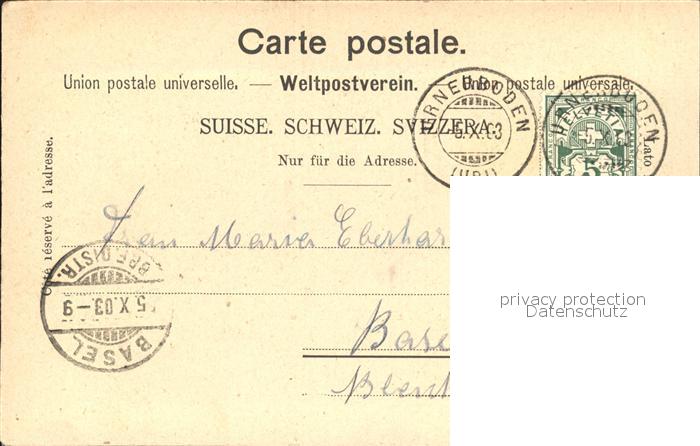 Carte postale.
Union postale universelle. — Weltpostverein. — Union postale universale.
SUISSE. SCHWEIZ. SVIZZERA.
Nur für die Adresse.
Côté réservé à l'adresse.
Lato
URNERBODEN
5.X.03
(URI)
URNERBODEN
HELVETIA
5
Frau Maria Eberhar
Base
BASEL
5.X.03-9
BRF.DISTR.
privacy protection
Datenschutz